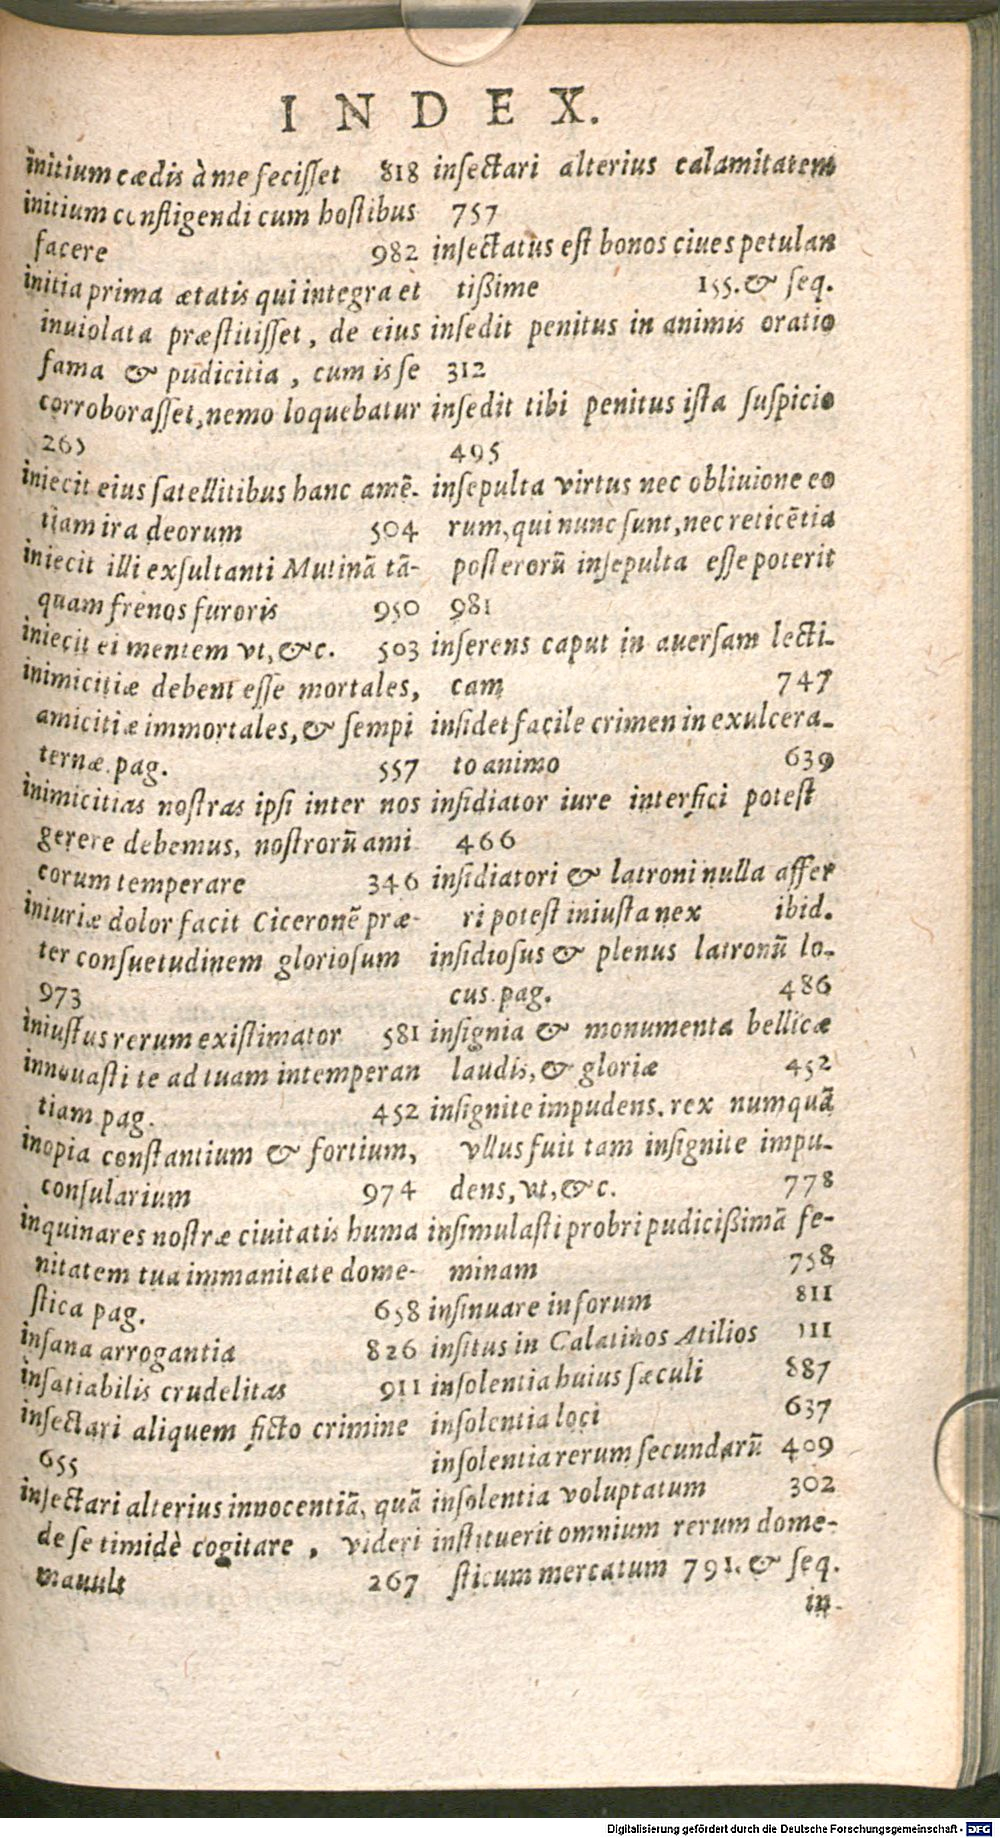 INDEX.
initium cædis à me fecisset 818
initium confligendi cum hostibus
facere 982
initia prima ætatis qui integra et
inuiolata præstitisset, de eius
fama & pudicitia, cum is se
corroborasset, nemo loquebatur
265
iniecit eius satellitibus hanc amē-
tiam ira deorum 504
iniecit illi exsultanti Mutinā tā-
quam frenos furoris 950
iniecit ei mentem vt, &c. 503
inimicitiæ debent esse mortales,
amicitiæ immortales, & sempi
ternæ. pag. 557
inimicitias nostras ipsi inter nos
gerere debemus, nostrorū ami
corum temperare 346
iniuriæ dolor facit Ciceronē præ-
ter consuetudinem gloriosum
973
iniustus rerum existimator 581
innouasti te ad tuam intemperan
tiam pag. 452
inopia constantium & fortium,
consularium 974
inquinares nostræ ciuitatis huma
nitatem tua immanitate dome-
stica pag. 658
insana arrogantia 826
insatiabilis crudelitas 911
insectari aliquem ficto crimine
655
insectari alterius innocentiā, quā
de se timidè cogitare, videri
mauult 267
insectari alterius calamitatem
757
insectatus est bonos ciues petulan
tißime 155. & seq.
insedit penitus in animis oratio
312
insedit tibi penitus ista suspicio
495
insepulta virtus nec obliuione eo
rum, qui nunc sunt, nec reticētia
posterorū insepulta esse poterit
981
inserens caput in auersam lecti-
cam 747
insidet facile crimen in exulcera-
to animo 639
insidiator iure interfici potest
466
insidiatori & latroni nulla affer
ri potest iniusta nex ibid.
insidiosus & plenus latronū lo-
cus. pag. 486
insignia & monumenta bellicæ
laudis, & gloriæ 452
insignite impudens. rex numquā
vllus fuit tam insignite impu-
dens, vt, &c. 778
insimulasti probri pudicißimā fe-
minam 758
insinuare in forum 811
insitus in Calatinos Atilios 111
insolentia huius sæculi 887
insolentia loci 637
insolentia rerum secundarū 409
insolentia voluptatum 302
instituerit omnium rerum dome-
sticum mercatum 791. & seq.
in-
Digitalisierung gefördert durch die Deutsche Forschungsgemeinschaft - DFG